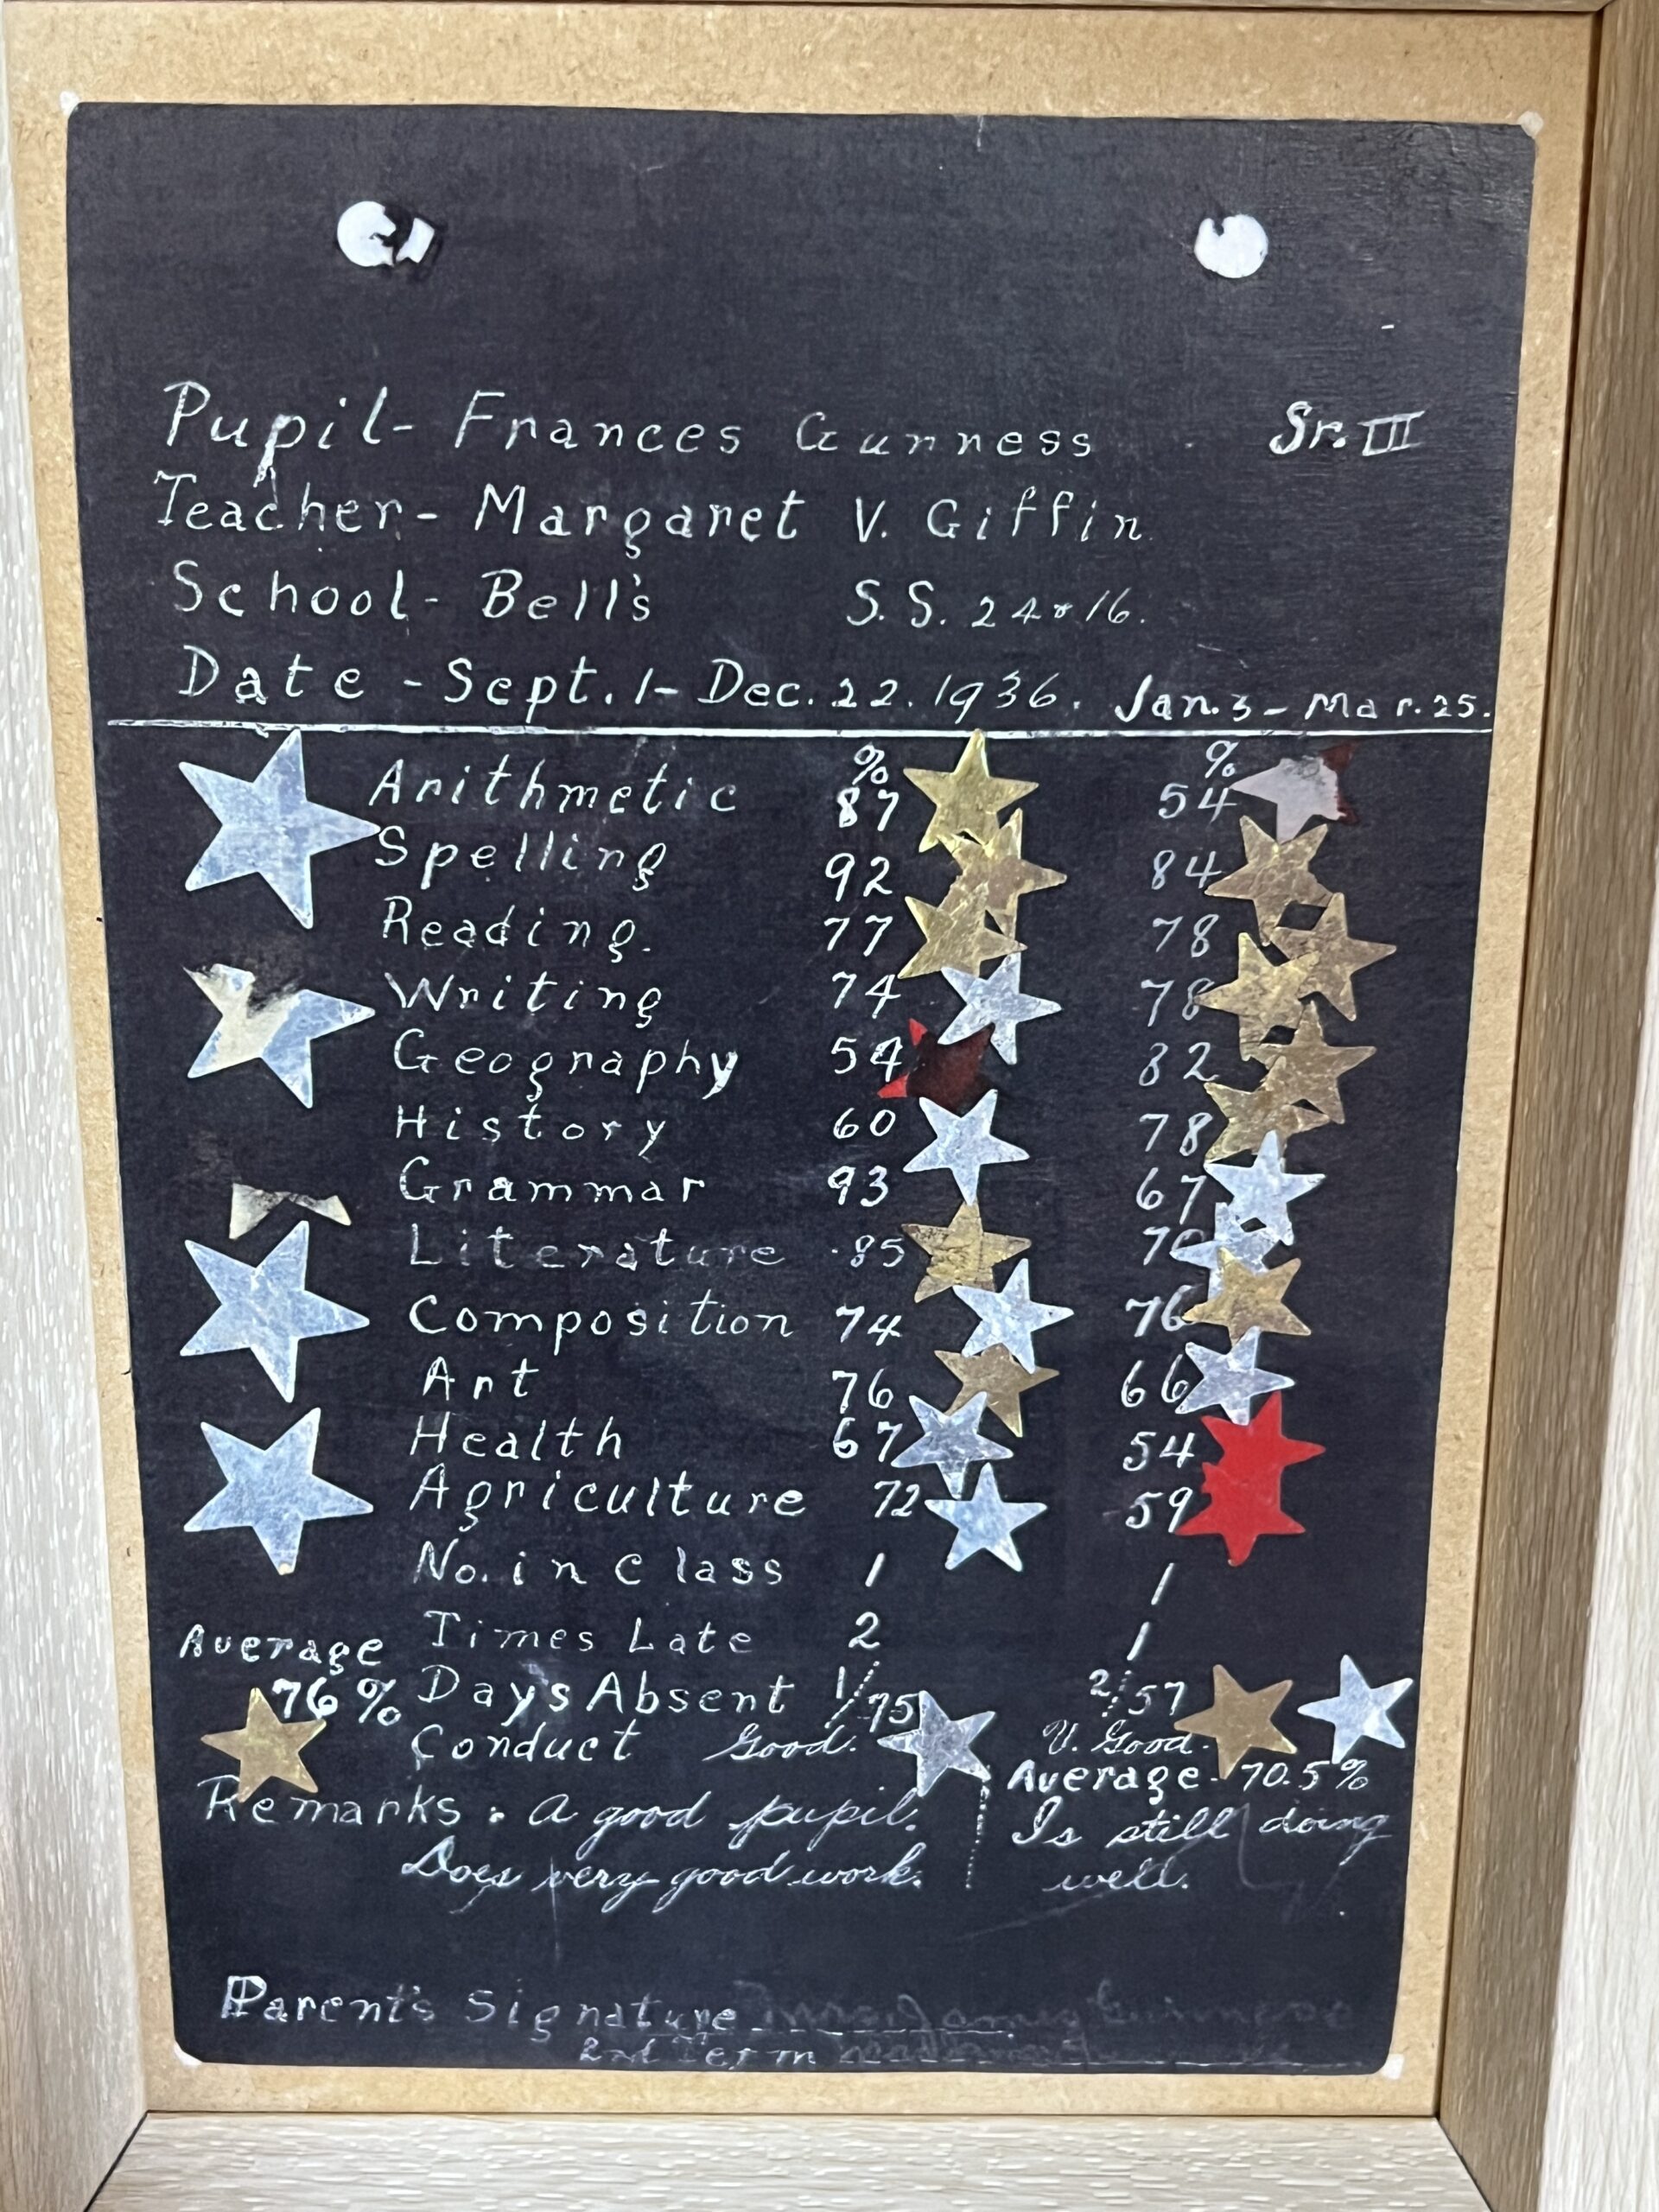 Pupil- Frances Gunness Sr. III
Teacher- Margaret V. Giffin
School- Bell's S.S. 24 & 16.
Date - Sept. 1- Dec. 22. 1936. Jan. 3 - Mar. 25.
% %
Arithmetic 87 54
Spelling 92 84
Reading. 77 78
Writing 74 78
Geography 54 82
History 60 78
Grammar 93 67
Literature 85 70
Composition 74 76
Art 76 66
Health 67 54
Agriculture 72 59
No. in class 1 1
Times Late 2 1
Average
76% Days Absent 1/75 2/57
Conduct Good. V. Good.
Average- 70.5%
Remarks: A good pupil. Is still doing
Does very good work. well.
Parent's Signature
2nd Term